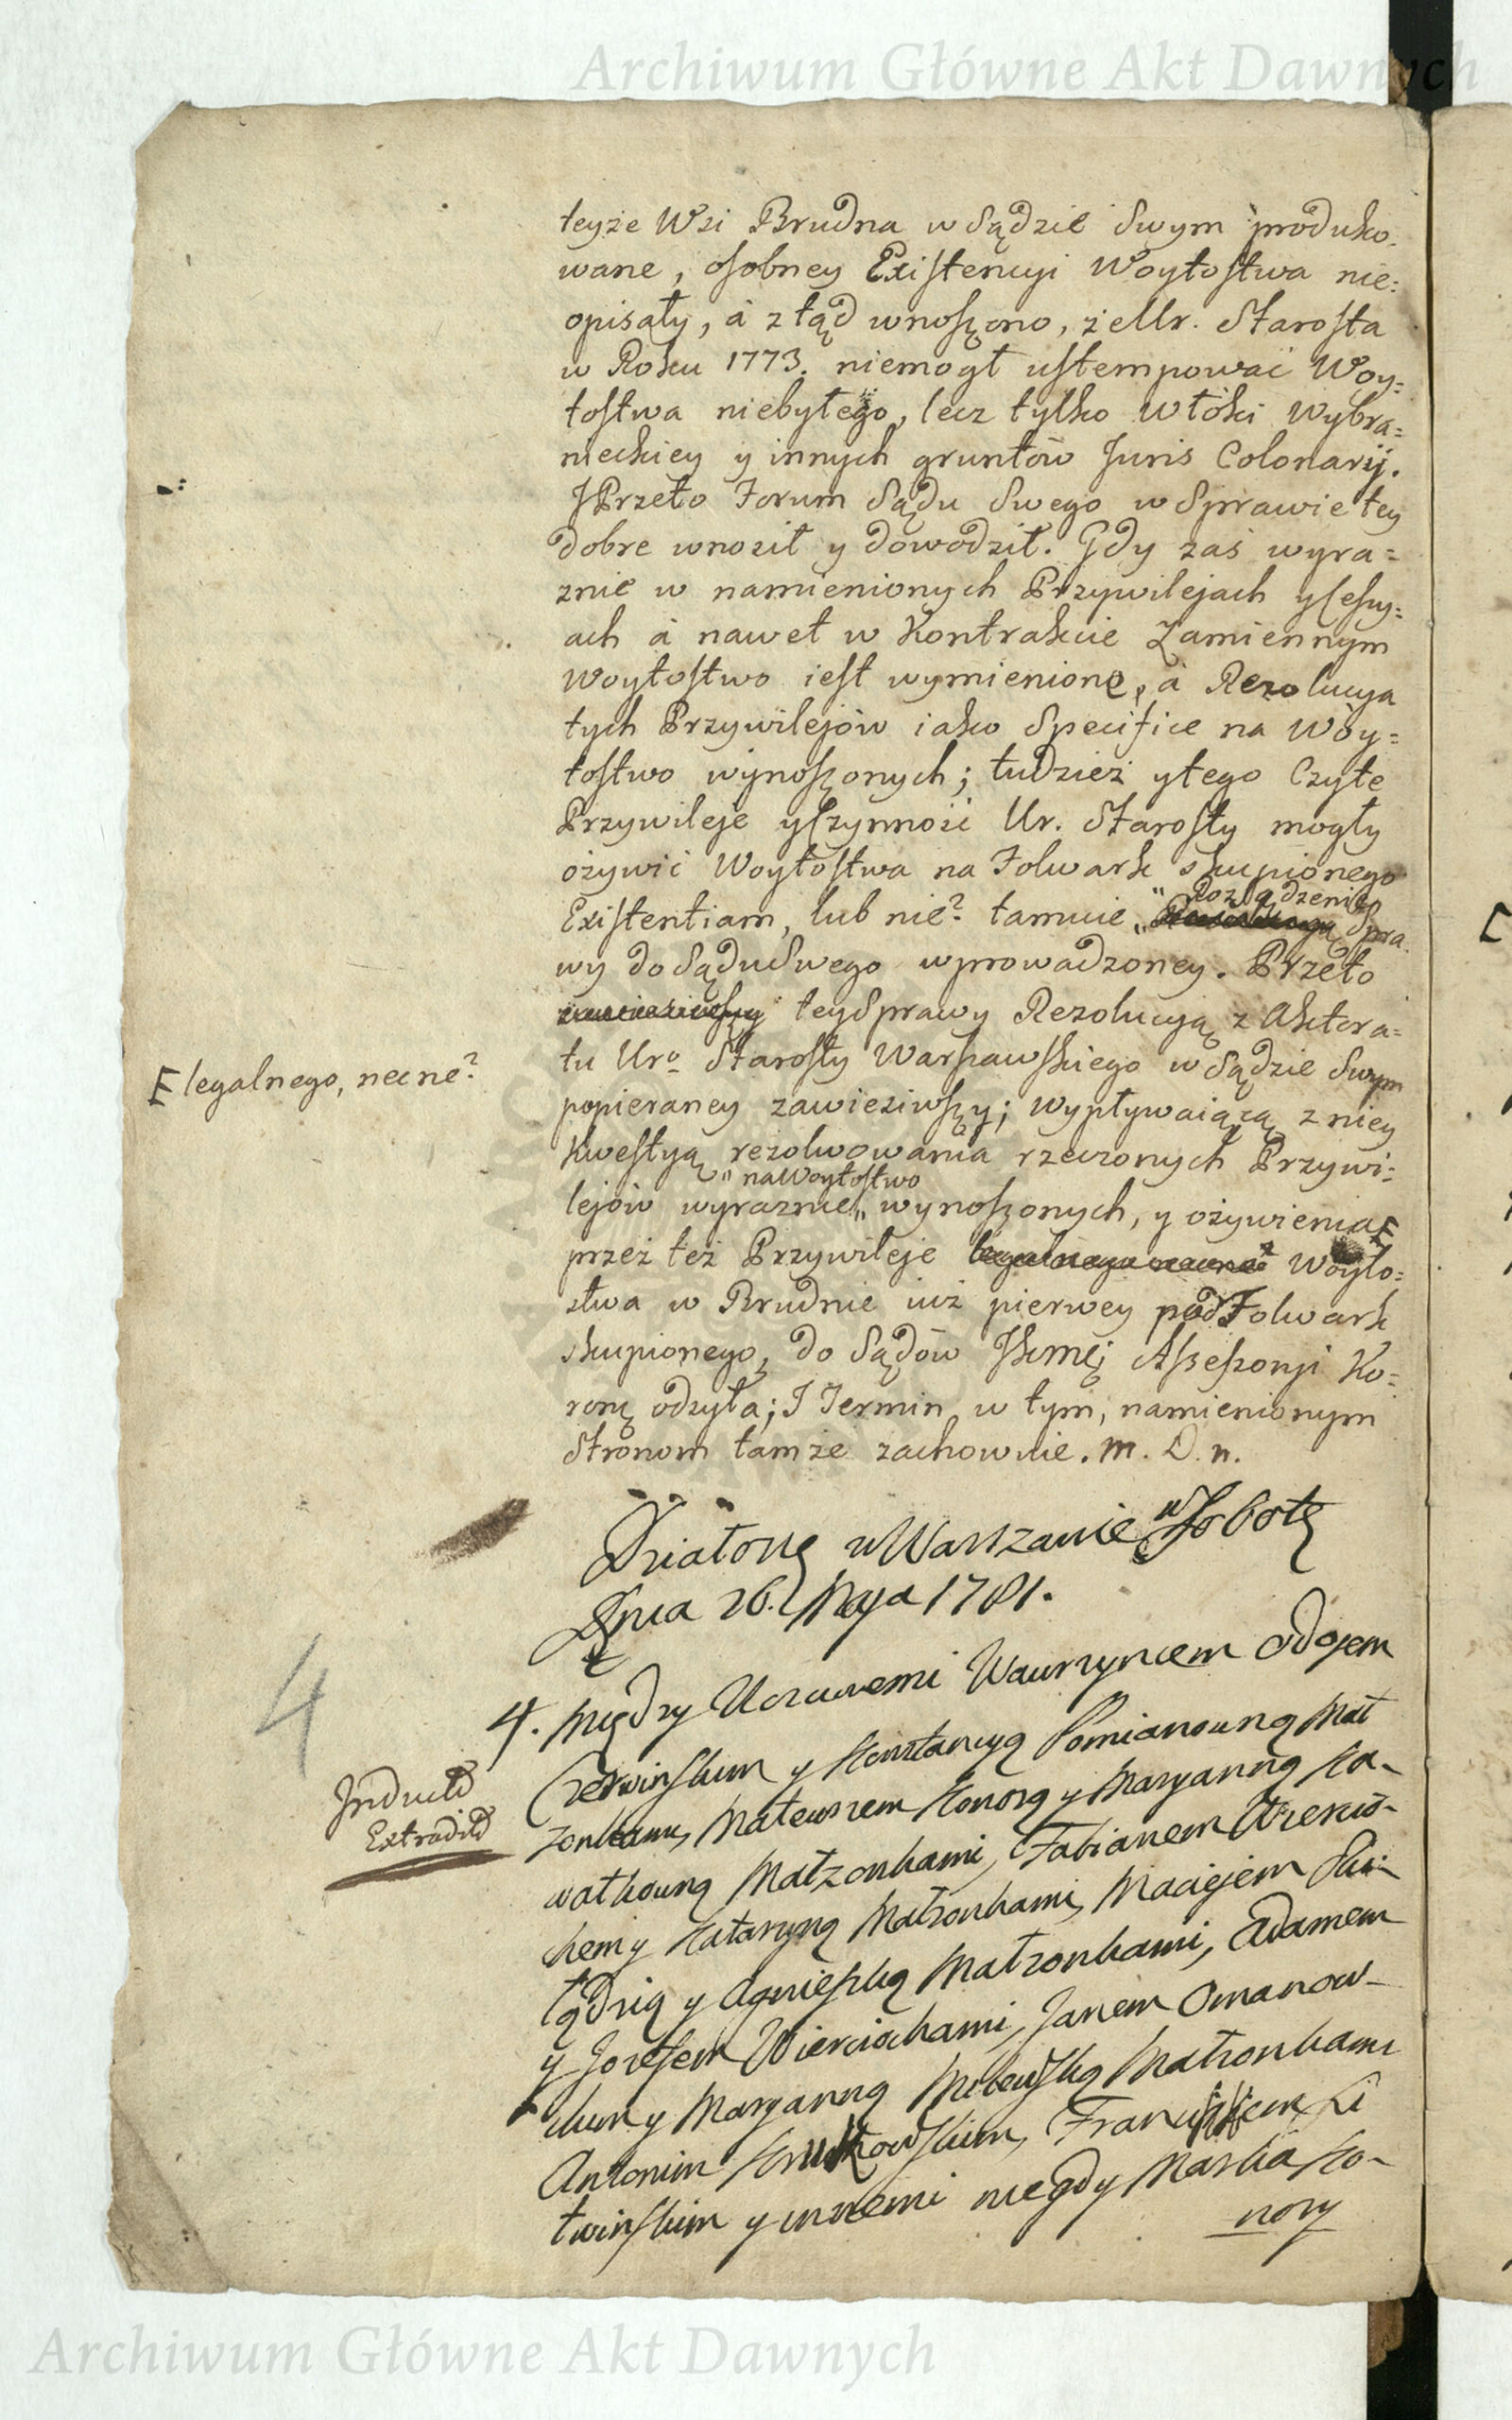 Archiwum Główne Akt Dawnych
teyże Wsi Brudna w Sądzie Swym produko-
wane, osobney Existencyi Woytostwa nie-
opisały, á ztąd wnoszono, że Ur. Starosta
w Roku 1773. niemogł ustempować Woy-
tostwa niebyłego, lecz tylko Włóki Wybra-
nieckiey y innych gruntów Juris Colonarij.
J Przeto Forum Sądu Swego w Sprawie tey
dobre wnosił y dowodził. Gdy zaś wyra-
znie w namienionych Przywilejach y Cessy-
ach á nawet w Kontrakcie Zamiennym
Woytostwo iest wymienione, á Rezolucya
tych Przywilejów iako Specifice na Woy-
tostwo wynoszonych; tudzież y tego Czyte
Przywileje y Czynność Ur. Starosty mogły
ożywić Woytostwa na Folwark skupionego
Rozsądzenie
Existentiam, lub nie? tamuie Spra-
wy do Sądu Swego wprowadzoney. Przeto
zawiesiwszy tey Sprawy Rezolucyą z Aktora-
tu Uro Starosty Warszawskiego w Sądzie Swym
E legalnego, nec ne?
popieraney zawiesiwszy; wypływaiącą z niey
Kwestyą rezolwowania rzeczonych Przywi-
na Woytostwo
lejów wyraznie wynoszonych, y ożywienia E
przez też Przywileje legalnego nec ne? Woyto-
stwa w Brudnie iuż pierwey pod Folwark
skupionego, do Sądów JKmci Assessoryi Ko-
ronę odsyła; J Termin w tym, namienionym
Stronom tamże zachowuie. m. D. n.
Działo się w Warszawie w Sobotę
Dnia 26. Maja 1781.
4
4. Między Uczciwemi Wawrzyncem Odojem
Inductd
Extraditd
Czerwinskim y Konstancyą Pomianowną Mał
zonkami, Mateuszem Konorą y Maryanną Ko-
watkowną Małżonkami, Fabianem Wiercio-
chem y Katarzyną Małżonkami, Maciejem
y Agnieszką Małżonkami, Adamem
y Jozefem Wierciochami, Janem Omanow-
skim y Maryanną Milewską Małżonkami
Antonim Franciszkiem Li
twinskim y innemi niegdy Maska Ko-
nory
Archiwum Główne Akt Dawnych